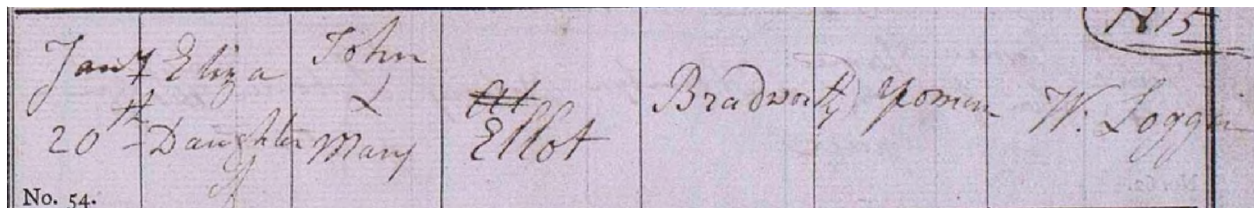 Jany
20th
Eliza
Daughter
of
John
&
Mary
Ellot
Bradworthy
Yomen
W. Loggin
No. 54.